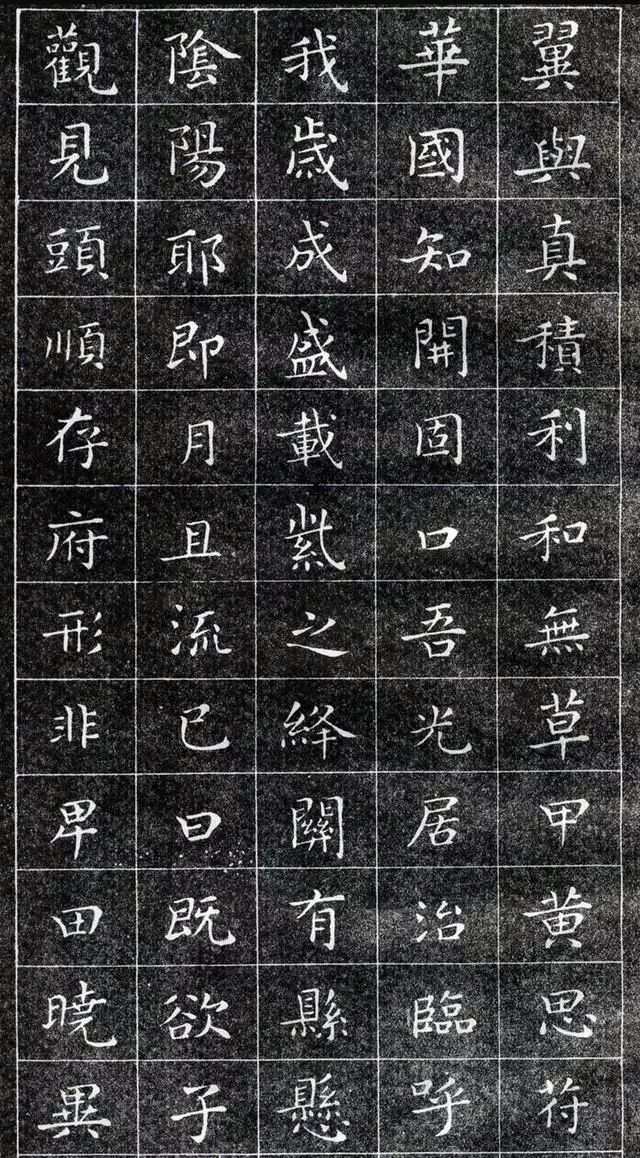 翼與真積利和無草甲黄思苻
華國知開固口吾光居治臨呼
我歳成盛載紫之絳關有縣懸
陰陽耶即月且流已曰既欲子
觀見頭順存府形非卑田曉異